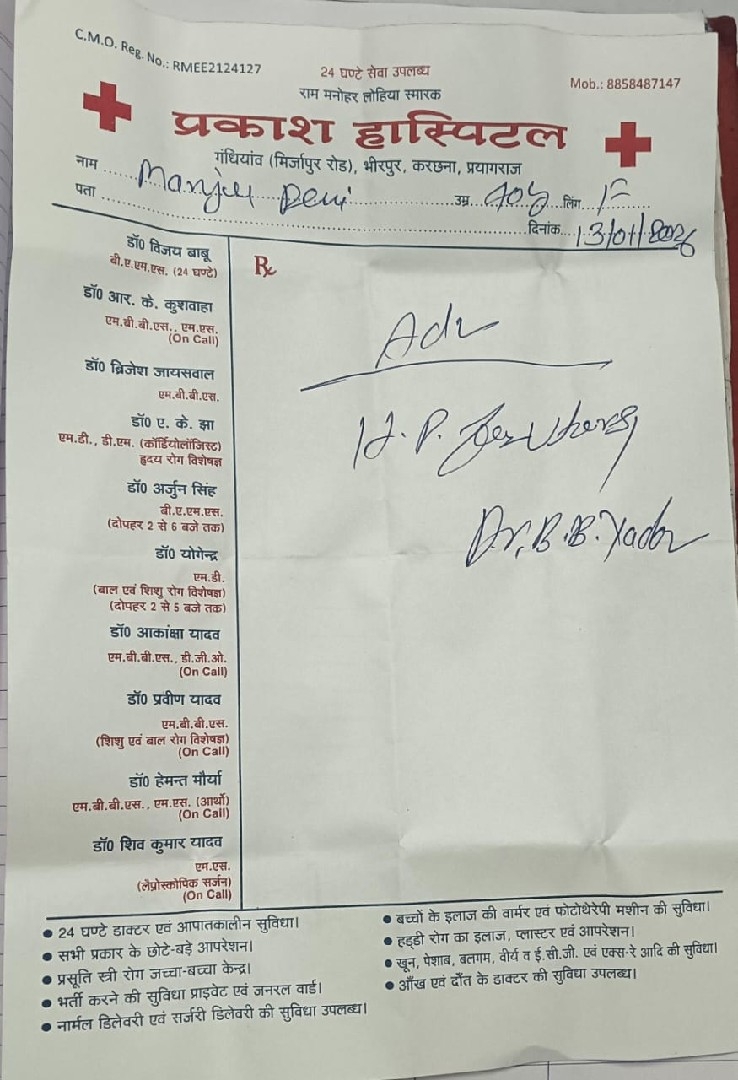 C.M.O. Reg. No.: RMEE2124127
24 घण्टे सेवा उपलब्ध
Mob.: 8858487147
राम मनोहर लोहिया स्मारक
प्रकाश हास्पिटल
गंधियांव (मिर्जापुर रोड), भीरपुर, करछना, प्रयागराज
नाम Manju Devi उम्र 40y लिंग F
पता दिनांक 13/01/2026
डॉ0 विजय बाबू
बी.ए.एम.एस. (24 घण्टे)
डॉ0 आर. के. कुशवाहा
एम.बी.बी.एस., एम.एस.
(On Call)
डॉ0 ब्रिजेश जायसवाल
एम.बी.बी.एस.
डॉ0 ए. के. झा
एम.डी., डी.एम. (कॉर्डियोलॉजिस्ट)
हृदय रोग विशेषज्ञ
डॉ0 अर्जुन सिंह
बी.ए.एम.एस.
(दोपहर 2 से 6 बजे तक)
डॉ0 योगेन्द्र
एम.डी.
(बाल एवं शिशु रोग विशेषज्ञ)
(दोपहर 2 से 5 बजे तक)
डॉ0 आकांक्षा यादव
एम.बी.बी.एस., डी.जी.ओ.
(On Call)
डॉ0 प्रवीण यादव
एम.बी.बी.एस.
(शिशु एवं बाल रोग विशेषज्ञ)
(On Call)
डॉ0 हेमन्त मौर्या
एम.बी.बी.एस., एम.एस. (आर्थो)
(On Call)
डॉ0 शिव कुमार यादव
एम.एस.
(लेप्रोस्कोपिक सर्जन)
(On Call)
Rx
Adv
H.P.
Dr. B.B. Yadav
● 24 घण्टे डाक्टर एवं आपातकालीन सुविधा।
● सभी प्रकार के छोटे-बड़े आपरेशन।
● प्रसूति स्त्री रोग जच्चा-बच्चा केन्द्र।
● भर्ती करने की सुविधा प्राइवेट एवं जनरल वार्ड।
● नार्मल डिलेवरी एवं सर्जरी डिलेवरी की सुविधा उपलब्ध।
● बच्चों के इलाज की वार्मर एवं फोटोथेरेपी मशीन की सुविधा।
● हड्डी रोग का इलाज, प्लास्टर एवं आपरेशन।
● खून, पेशाब, बलगम, वीर्य व ई.सी.जी. एवं एक्स-रे आदि की सुविधा।
● आँख एवं दाँत के डाक्टर की सुविधा उपलब्ध।